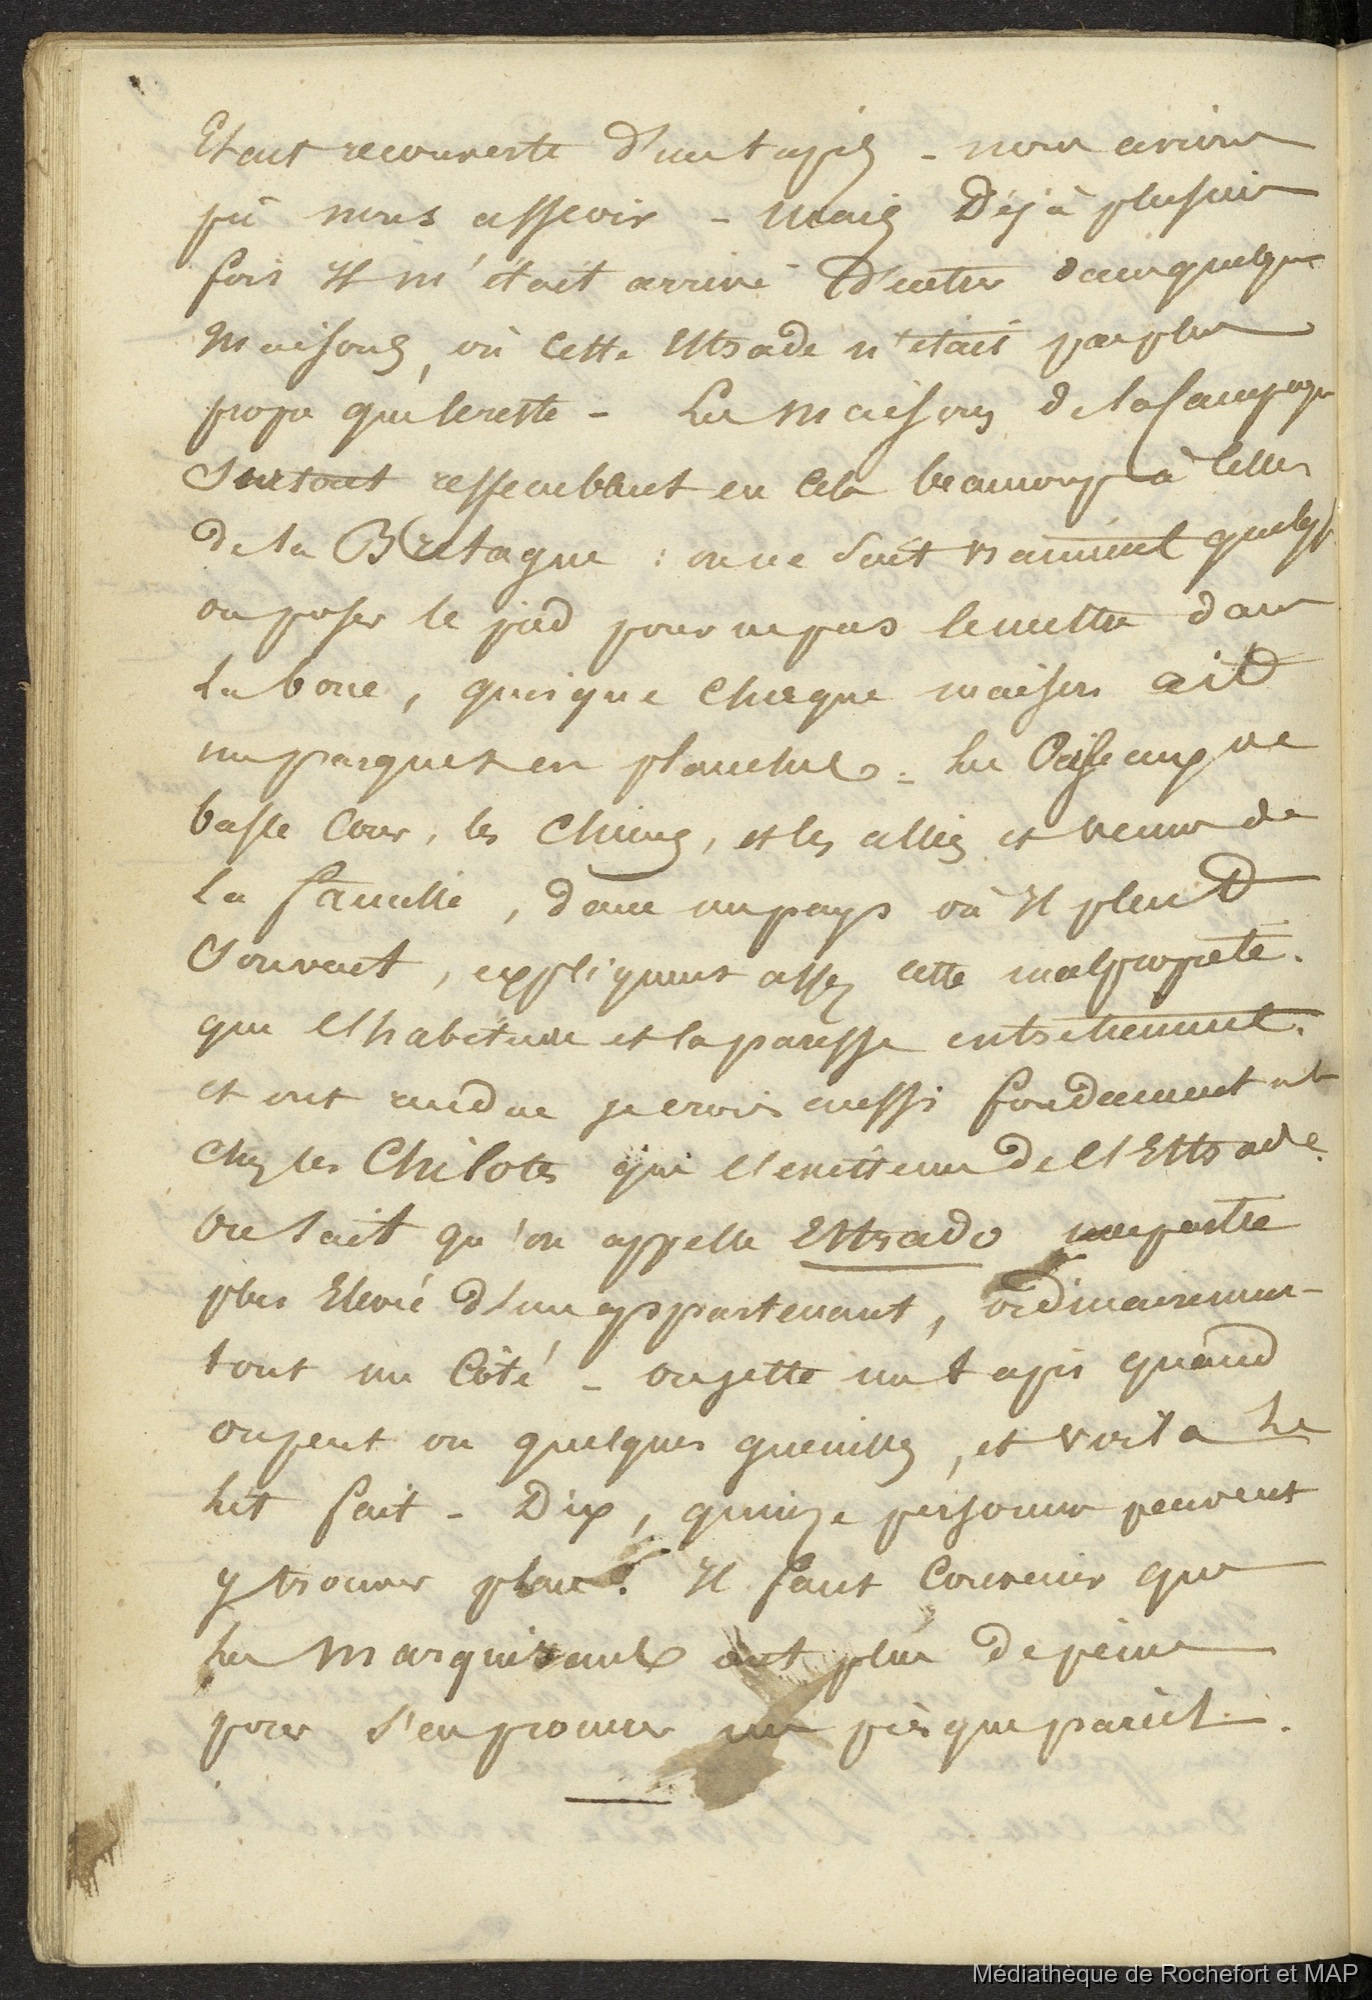 Etait recouverte d'un tapis - nous avions
pû nous asseoir - mais Déjà plusieurs
fois Il m'était arrivé D'entrer dans quelques
maisons, où cette Estrade n'etait pas plus
propre que le reste - Les maisons de la Campagne
Surtout ressemblent en Cela beaucoup à Celles
de la Bretagne : on ne Sait vraiment quelqf
ou poser le pied pour ne pas le mettre dans
la boue, quoique chaque maison ait
un parquet en planches - Les Oiseaux de
basse Cour, les Chiens, et les allées et venues de
la famille, dans un pays où Il pleut
Souvent, expliquent assez cette malpropreté.
que l'habitude et la paresse entretiennent.
et ont rendue je crois aussi fondamentale
chez les Chilotes que l'existence de l'Estrade.
On sait qu'on appelle Estrado une partie
plus Elevée d'un appartement, ordinairement
tout un Côté - on jette un tapis quand
on peut ou quelques guenilles, et voila Le
Lit fait - Dix, quinze personnes peuvent
y trouver place. Il faut Convenir que
Les Marquisants ont plus de peine
pour s'en procurer un presque pareil.
Médiathèque de Rochefort et MAP